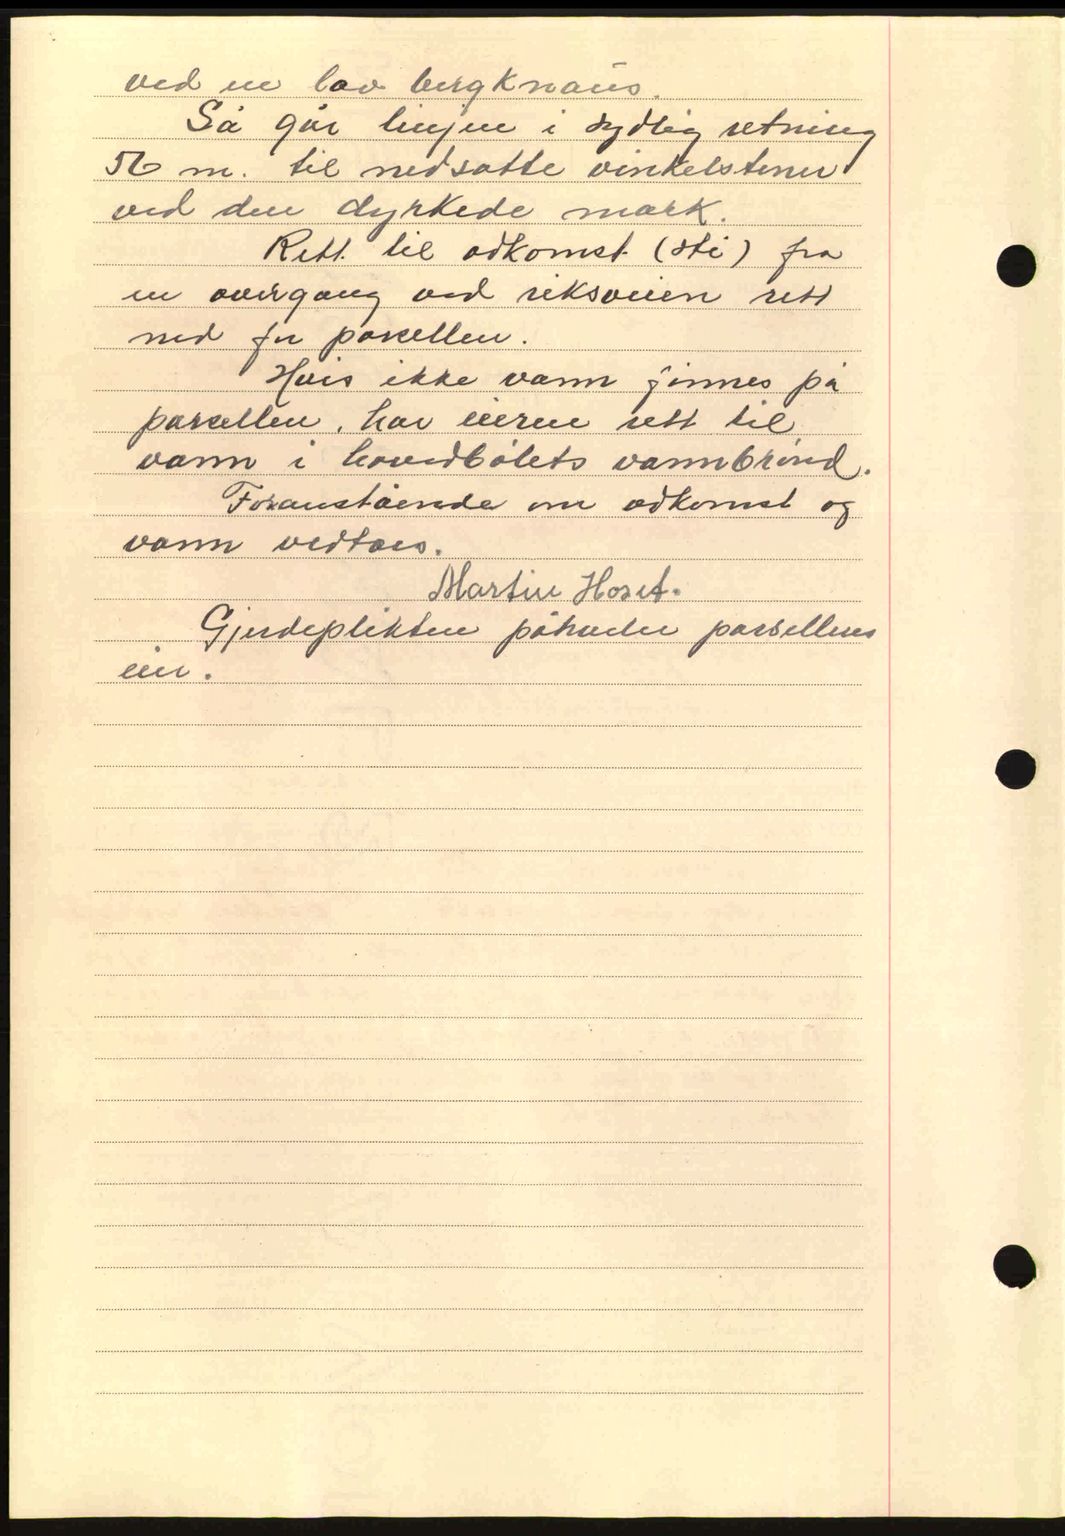 ved en lav bergknaus.
Så går linjen i sydlig retning
56 m. til nedsatte vinkelstener
ved den dyrkede mark.
Rett til adkomst (sti) fra
en overgang ved riksveien rett
ned for parsellen.
Hvis ikke vann finnes på
parsellen, har eieren rett til
vann i hovedbølets vannbrønd.
Foranstående om adkomst og
vann vedtaes.
Martin Hoset.
Gjerdeplikten påhviler parsellens
eier.